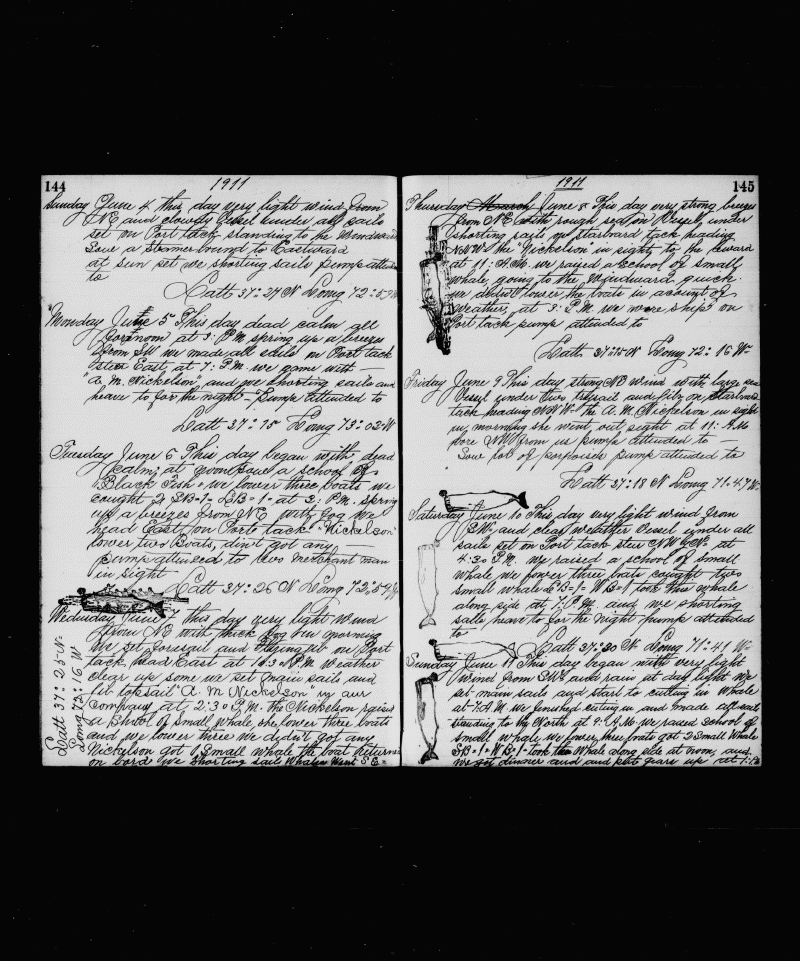 144
1911
Sunday June 4 this day very light wind from
NE and cloudy Vessel under all sails
set on Port tack standing to the Windward
Saw a Steamer bound to Eastward
at sun set we shorting sails pump attended
to
Latt 37:27 N Long 72:59
Monday June 5 This day dead calm all
fornoon at 3: PM spring up a breeze
from SW we made all sails on Port tack
steer East, at 7: P.M. we game with
"A. M. Nickelson" and we shorting sails and
heave to for the night - Pump attended to
Latt 37:15 Long 73:02 W
Tuesday June 6 This day began with dead
calm, at noon saw a school of
Black Fish we lower three boats we
caught 2 SB-1- LB-1- at 3: P.M. spring
up a breezes from NE with fog we
head East, on Port tack "Nickelson"
lower two Boats, didn't got any
pump attened to two merchant man
in sight
Latt 37:26 N Long 72:59
Wednesday June 7 this day very light wind
from NE with thick fog in morning
we set foresail and flying jib on Port
tack head East at 1:30 P.M. Weather
clear up some we set main sails and
jib topsail "A. M Nickelson" in our
company at 2:30 P.M. the Nickelson raised
a school of small whale she lower three boats
and we lower three we didn't got any
Nickelson got 1 small whale the boat return
on bord we shorting sails Whales Went S.E.
Latt 37:25 N
Long 72:16 W
1911
145
Thursday March June 8 This day very strong breeze
from NE with rough sea on Vessel under
shorting sails on starboard tack heading
NNW the "Nickelson" in sight to the leward
at 11: A.M. we raised a school of small
whale going to the windward quick
we didn't lower the boats in account of
weather, at 3: P.M. we wore ship on
Port tack pump attended to
Latt. 37:15 N Long 72:16 W
Friday June 9 This day strong NE wind with large sea
Vessel under two trysail and jib, on Starboard
tack heading NNW the A. M. Nickelson in sight
in morning she went out sight at 11: A.M
bore NW from us pump attended to
Saw lot of porpouise pump attended to
Latt 37:18 N Long 71:47 W
Saturday June 10 This day very light wind from
SW and clear weather Vessel under all
sails set on Port tack steer NW by N at
4:30 P.M. we raised a school of small
whale we lower three boats caught two
small whale LB=1= WB=1 took this whale
along side at 7: P.M. and we shorting
sails heave to for the night pump attended
to
Latt 37:30 N Long 71:41 W
Sunday June 11 This day began with very light
wind from SW and rain at day light we
set main sails and start to cutting in whale
at 7: A.M. we finished cutting in and made all sail
standing to by North at 9: A.M. we raised school of
small whale we lower three boats got 2 Small Whale
SB-1= WB-1- took two Whale along side at noon, and
we get dinner and and put gears up at 1: P.M.